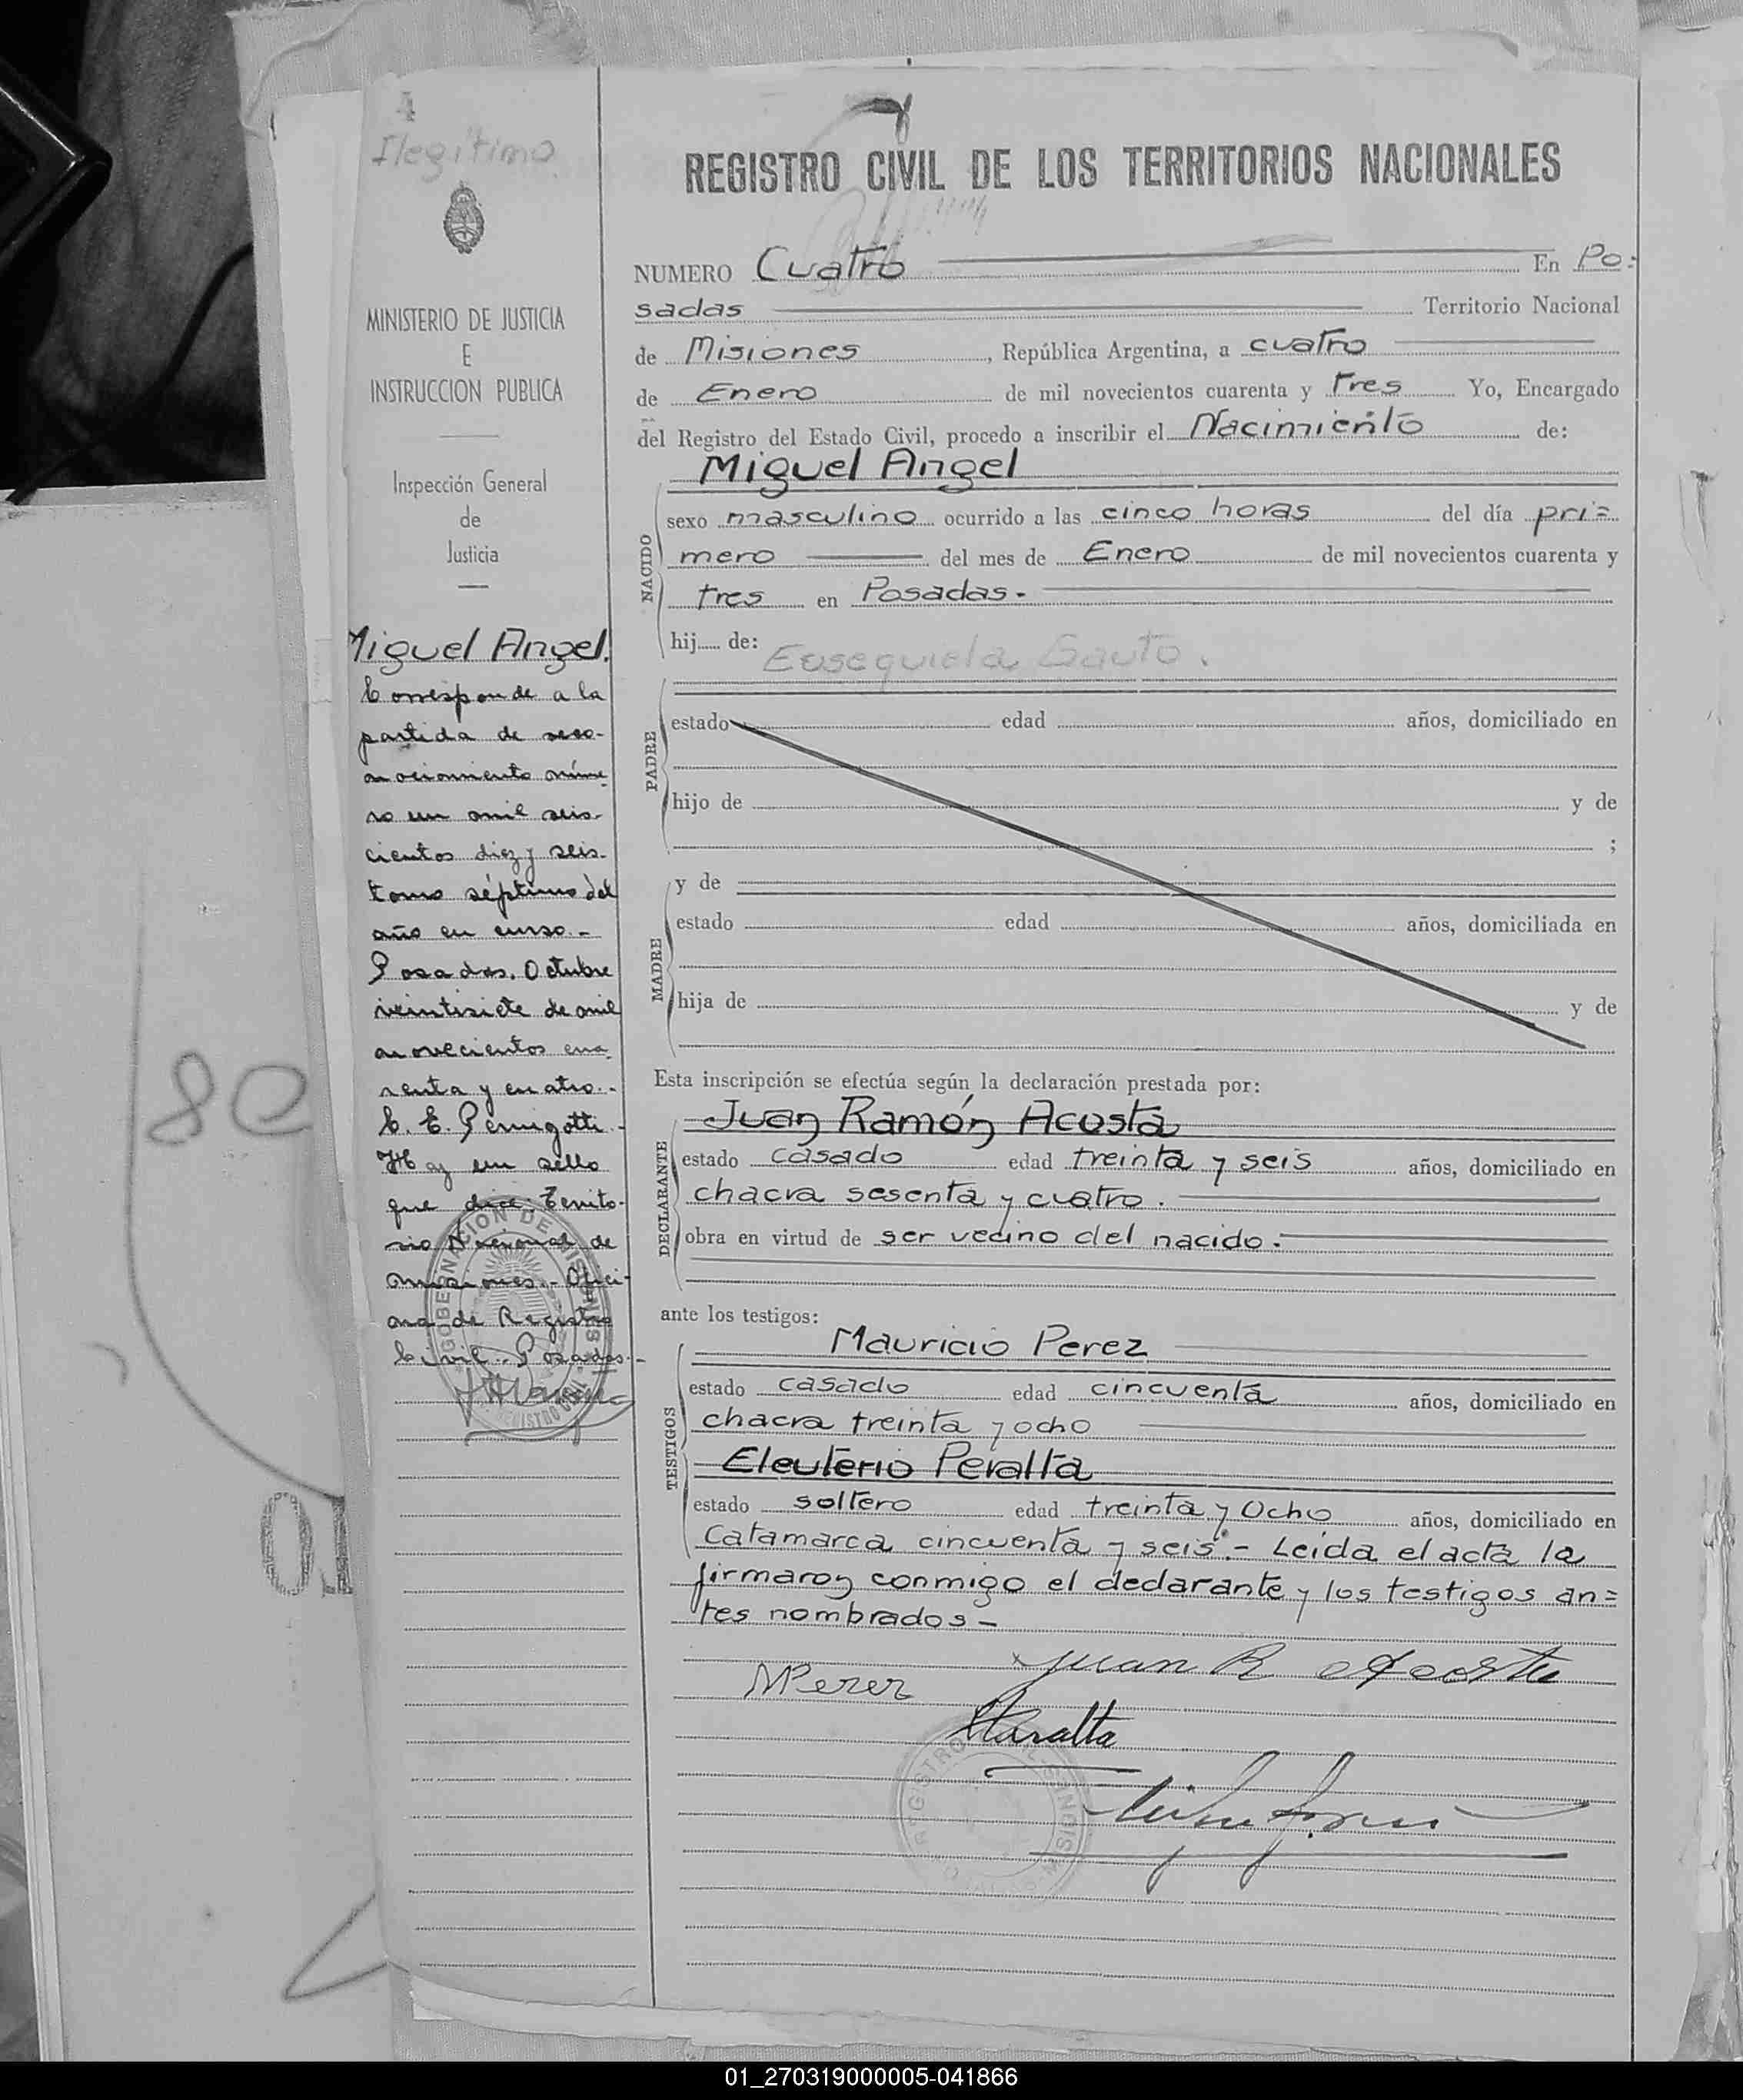 4
Ilegítimo
MINISTERIO DE JUSTICIA
E
INSTRUCCION PUBLICA
Inspección General
de
Justicia
Miguel Angel.
Corresponde a la
partida de reco-
nocimiento núme
ro un mil seis-
cientos diez y seis-
tomo séptimo del
año en curso.-
Posadas, Octubre
veintisiete de mil
novecientos cua
renta y cuatro.-
C. E. Pernigotti.-
Hay un sello
que dice: Territo-
rio Nacional de
Misiones.- Ofici-
na de Registro
Civil.- Posadas.-
GOBERNACION DE MISIONES
REGISTRO CIVIL
REGISTRO CIVIL DE LOS TERRITORIOS NACIONALES
NUMERO Cuatro En Po=
sadas Territorio Nacional
de Misiones, República Argentina, a cuatro
de Enero de mil novecientos cuarenta y Tres Yo, Encargado
del Registro del Estado Civil, procedo a inscribir el Nacimiento de:
Miguel Angel
NACIDO
sexo masculino ocurrido a las cinco horas del día pri=
mero del mes de Enero de mil novecientos cuarenta y
tres en Posadas.-
hij..... de: Eusequiela Gauto.
PADRE
estado edad años, domiciliado en
hijo de y de
;
y de
MADRE
estado edad años, domiciliada en
hija de y de
Esta inscripción se efectúa según la declaración prestada por:
Juan Ramón Acosta
DECLARANTE
estado casado edad treinta y seis años, domiciliado en
chacra sesenta y cuatro.
obra en virtud de ser vecino del nacido.
ante los testigos:
Mauricio Perez
TESTIGOS
estado casado edad cincuenta años, domiciliado en
chacra treinta y ocho
Eleuterio Peralta
estado soltero edad treinta y ocho años, domiciliado en
Catamarca cincuenta y seis.- Leida el acta la
firmaron conmigo el declarante y los testigos an=
tes nombrados-
Juan R Acosta
MPerez
Peralta
REGISTRO
MISIONES
80
01_270319000005-041866